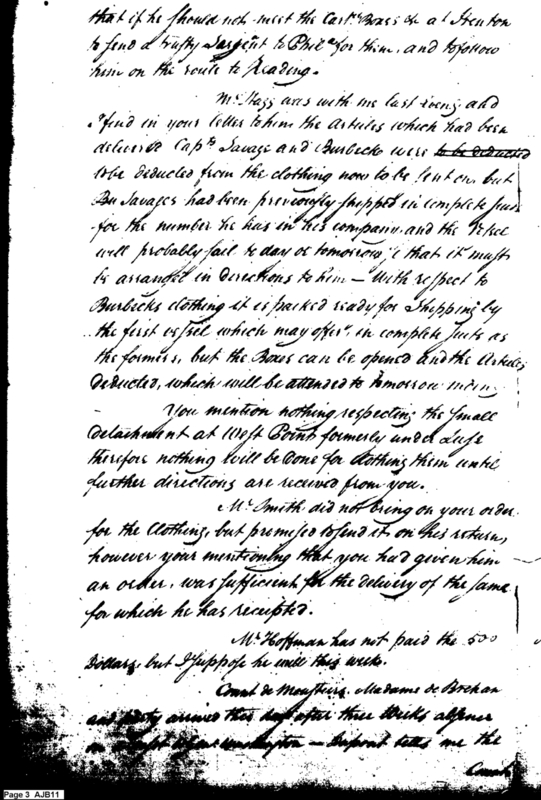 that if he should not meet the Cart, Boxes &c at Trenton
to send a trusty Sargent to Phila for them, and to follow
him on the route to Reading.
Mr Stagg was with me last eveng and
I find in your letter to him the Articles which had been
delivered Capts Savage and Burbecks were to be deducted
to be deducted from the clothing now to be sent on, but
Savages had been previously shipped in complete suits
for the number he has in his company and the Vessel
will probably sail to day or tomorrow, that it must
be arranged in directions to him — With respect to
Burbecks clothing it is packed ready for Shipping by
the first vessel which may offer, in complete suits as
the former, but the Boxes can be opened and the Articles
deducted, which will be attended to tomorrow morng
You mention nothing respecting the small
detachment at West Point formerly under
therefore nothing will be done for clothing them until
further directions are received from you.
Mr Smith did not bring on your order
for the Clothing, but promised to send it on his return,
however your mentioning that you had given him
an order, was sufficient for the delivery of the same
for which he has receipted.
Mr Hoffman has not paid the 500
Dollars, but I suppose he will this week.
Count de Moustiers, Madame de Brehan
and party arrived this day after three weeks absence
on a to Genl Washington — Duport tells me the
Count
Page 3 AJB11